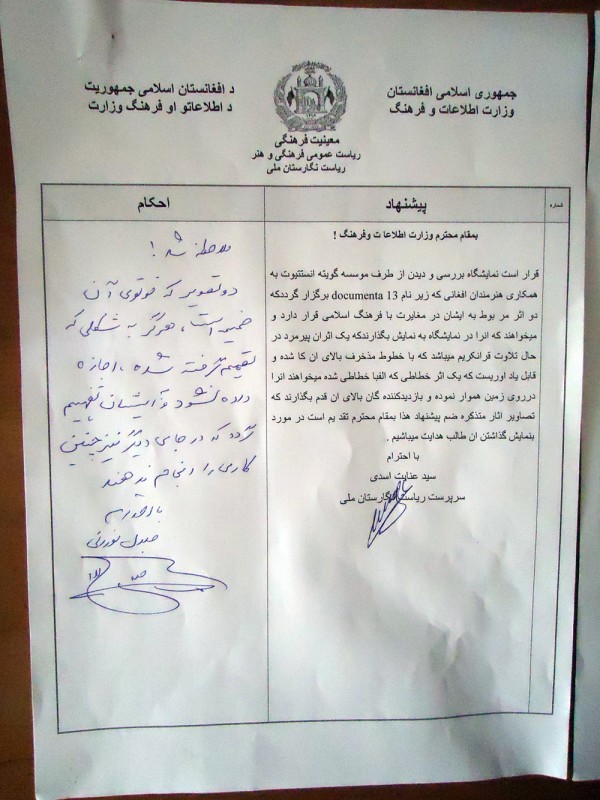 جمهوری اسلامی افغانستان
وزارت اطلاعات و فرهنگ
د افغانستان اسلامی جمهوریت
د اطلاعاتو او فرهنگ وزارت
معینیت فرهنگی
ریاست عمومی فرهنگی و هنر
ریاست نگارستان ملی
شماره
پیشنهاد
احکام
بمقام محترم وزارت اطلاعا ت وفرهنگ !
قرار است نمایشگاه بررسی و دیدن از طرف موسسه گویته انستتیوت به
همکاری هنرمندان افغانی که زیر نام documenta 13 برگزار گرددکه
دو اثر مر بوط به ایشان در مغایرت با فرهنگ اسلامی قرار دارد و
میخواهند که انرا در نمایشگاه به نمایش بگذارندکه یک اثران پیرمرد در
حال تلاوت قرانکریم میباشد که با خطوط مذخرف بالای ان کا شده و
قابل یاد اوریست که یک اثر خطاطی که الفبا خطاطی شده میخواهند انرا
درروی زمین هموار نموده و بازدیدکننده گان بالای ان قدم بگذارند که
تصاویر اثار متذکره ضم پیشنهاد هذا بمقام محترم تقد یم است در مورد
بنمایش گذاشتن ان طالب هدایت میباشیم .
با احترام
سید عنایت اسدی
سرپرست ریاست نگارستان ملی
ملاحظه شد !
دو تصویر که فوتوی آن
ضمیمه است ، هرگز به شکلی که
گرفته شده ، اجازه
داده نشود و تفهیم
گردد که در جای دیگر نیز چنین
کاری را انجام ندهند
با احترام